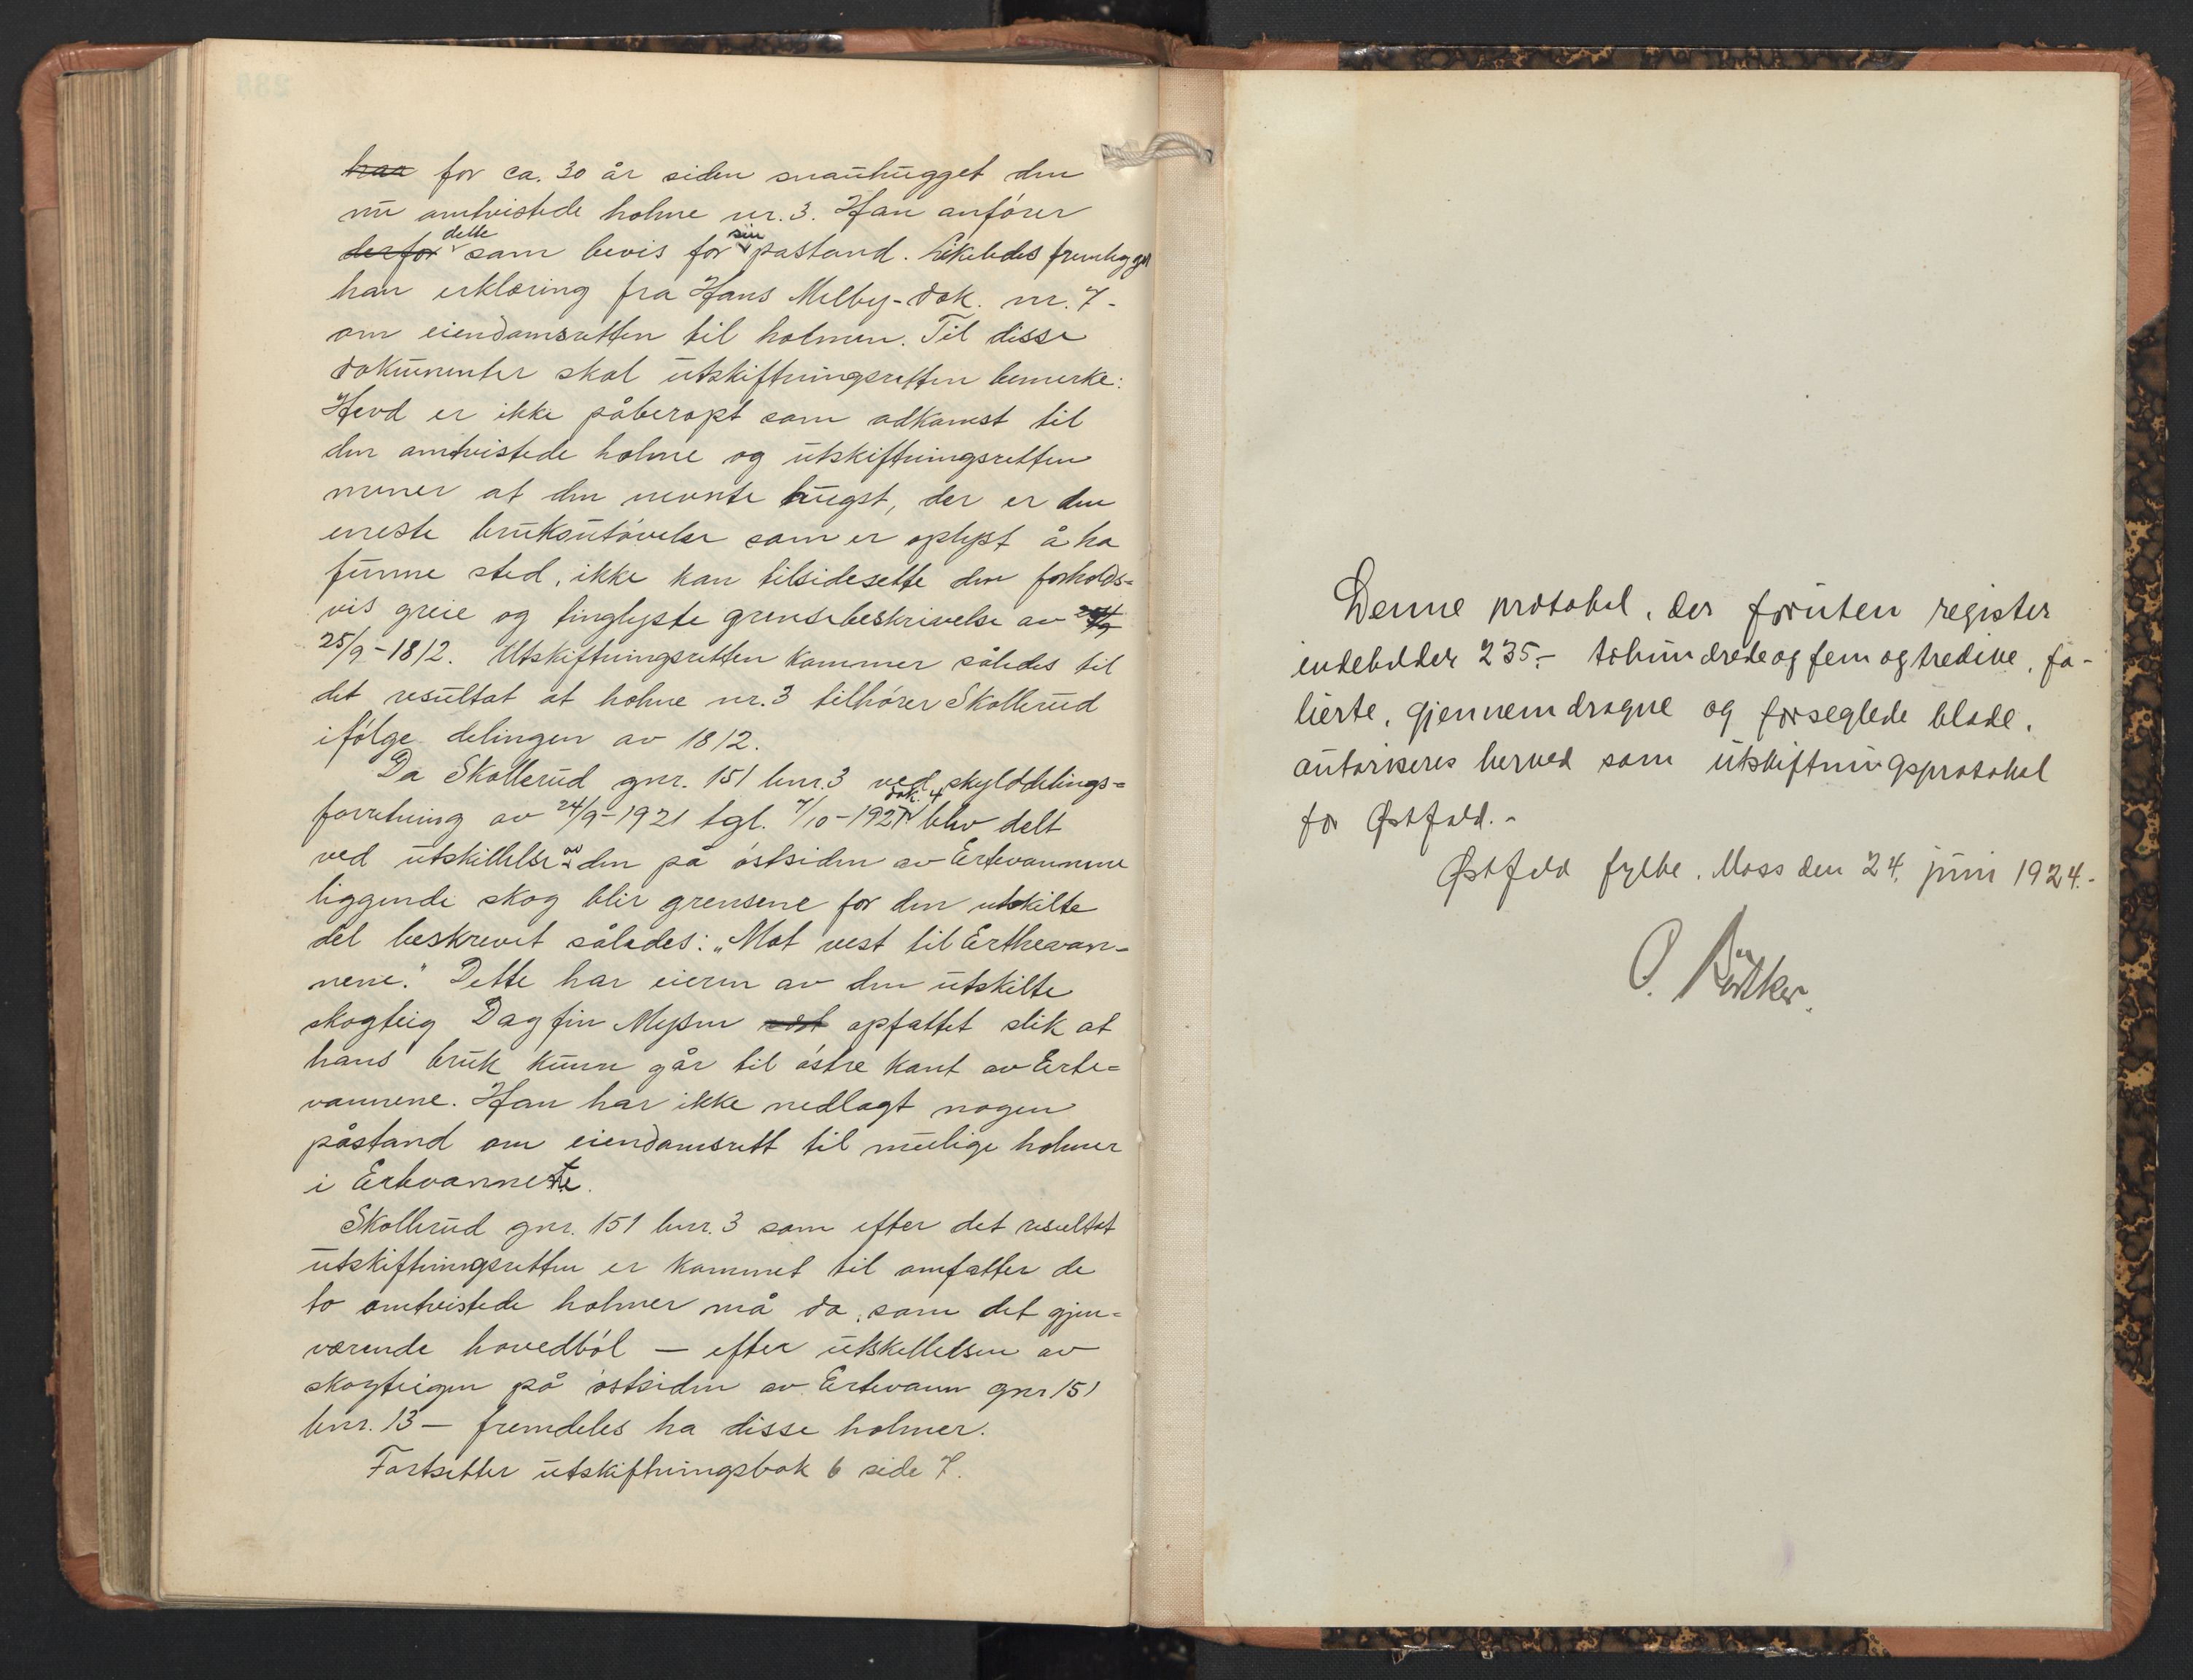 haa for ca. 30 år siden snauhugget den
nu omtvistede holme nr. 3. Han anfører
derfor dette som bevis for sin påstand. Likeledes fremlegger
han erklæring fra Hans Melby - dok. nr. 7 -
om eiendomsretten til holmen. Til disse
dokumenter skal utskiftningsretten bemerke:
Hevd er ikke påberopt som adkomst til
den omtvistede holme og utskiftningsretten
mener at den nevnte hugst, der er den
eneste bruksutøvelse som er oplyst å ha
funne sted, ikke kan tilsidesette den forholds=
vis greie og tinglyste grensebeskrivelse av
25/9-1812. Utskiftningsretten kommer således til
det resultat at holme nr. 3 tilhører Skollerud
ifølge delingen av 1812.
Da Skollerud gnr. 151 bnr. 3 ved skylddelings=
forretning av 24/9-1921 tgl. 7/10-1921 dok. 4 blev delt
ved utskillelse av den på østsiden av Ertevannene
liggende skog blir grensene for den utskilte
del beskrevet således: „Mot vest til Erthevan-
nene." Dette har eieren av den utskilte
skogteig Dagfin Mysen opfattet slik at
hans bruk kunn går til østre kant av Erte=
vannene. Han har ikke nedlagt nogen
påstand om eiendomsrett til mulige holmer
i Ertevannene.
Skollerud gnr. 151 bnr. 3 som efter det resultat
utskiftningsretten er kommet til omfatter de
to omtvistede holmer må da, som det gjen=
værende hovedbøl — efter utskillelsen av
skogteigen på østsiden av Ertevann gnr 151
bnr. 13 — fremdeles ha disse holmer.
Fortsetter utskiftningsbok 6 side 7.
Denne protokol, der foruten register
indeholder 235.- tohundredeogfemogtredive, fo-
lierte, gjennemdragne og forseglede blade,
autoriseres herved som utskiftningsprotokol
for Østfold.-
Østfold fylke, Moss den 24. juni 1924.-